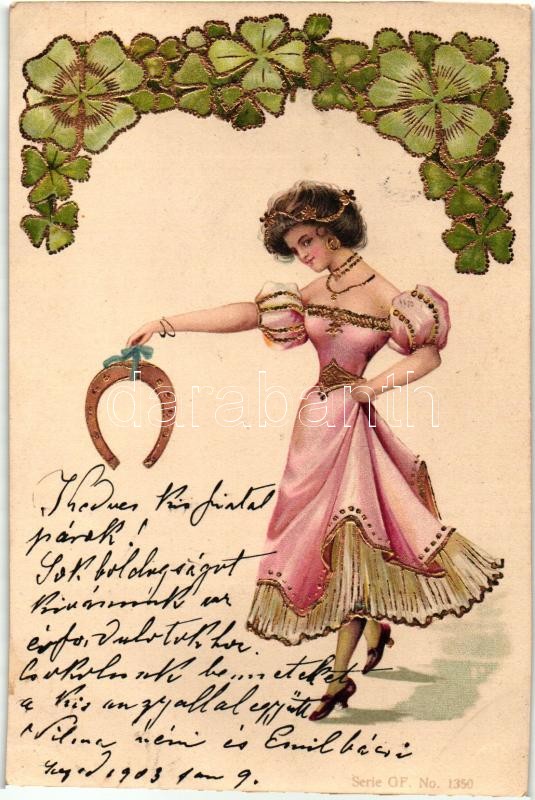 Kedves kis fiatal
párok!
Sok boldogságot
kivánunk az
évfordulotokhoz.
Csokolunk benneteket
a kis angyallal együtt
Vilma néni és Emil bácsi
Szeged 1903 jan 9.
Serie GF. No. 1350
darabanth